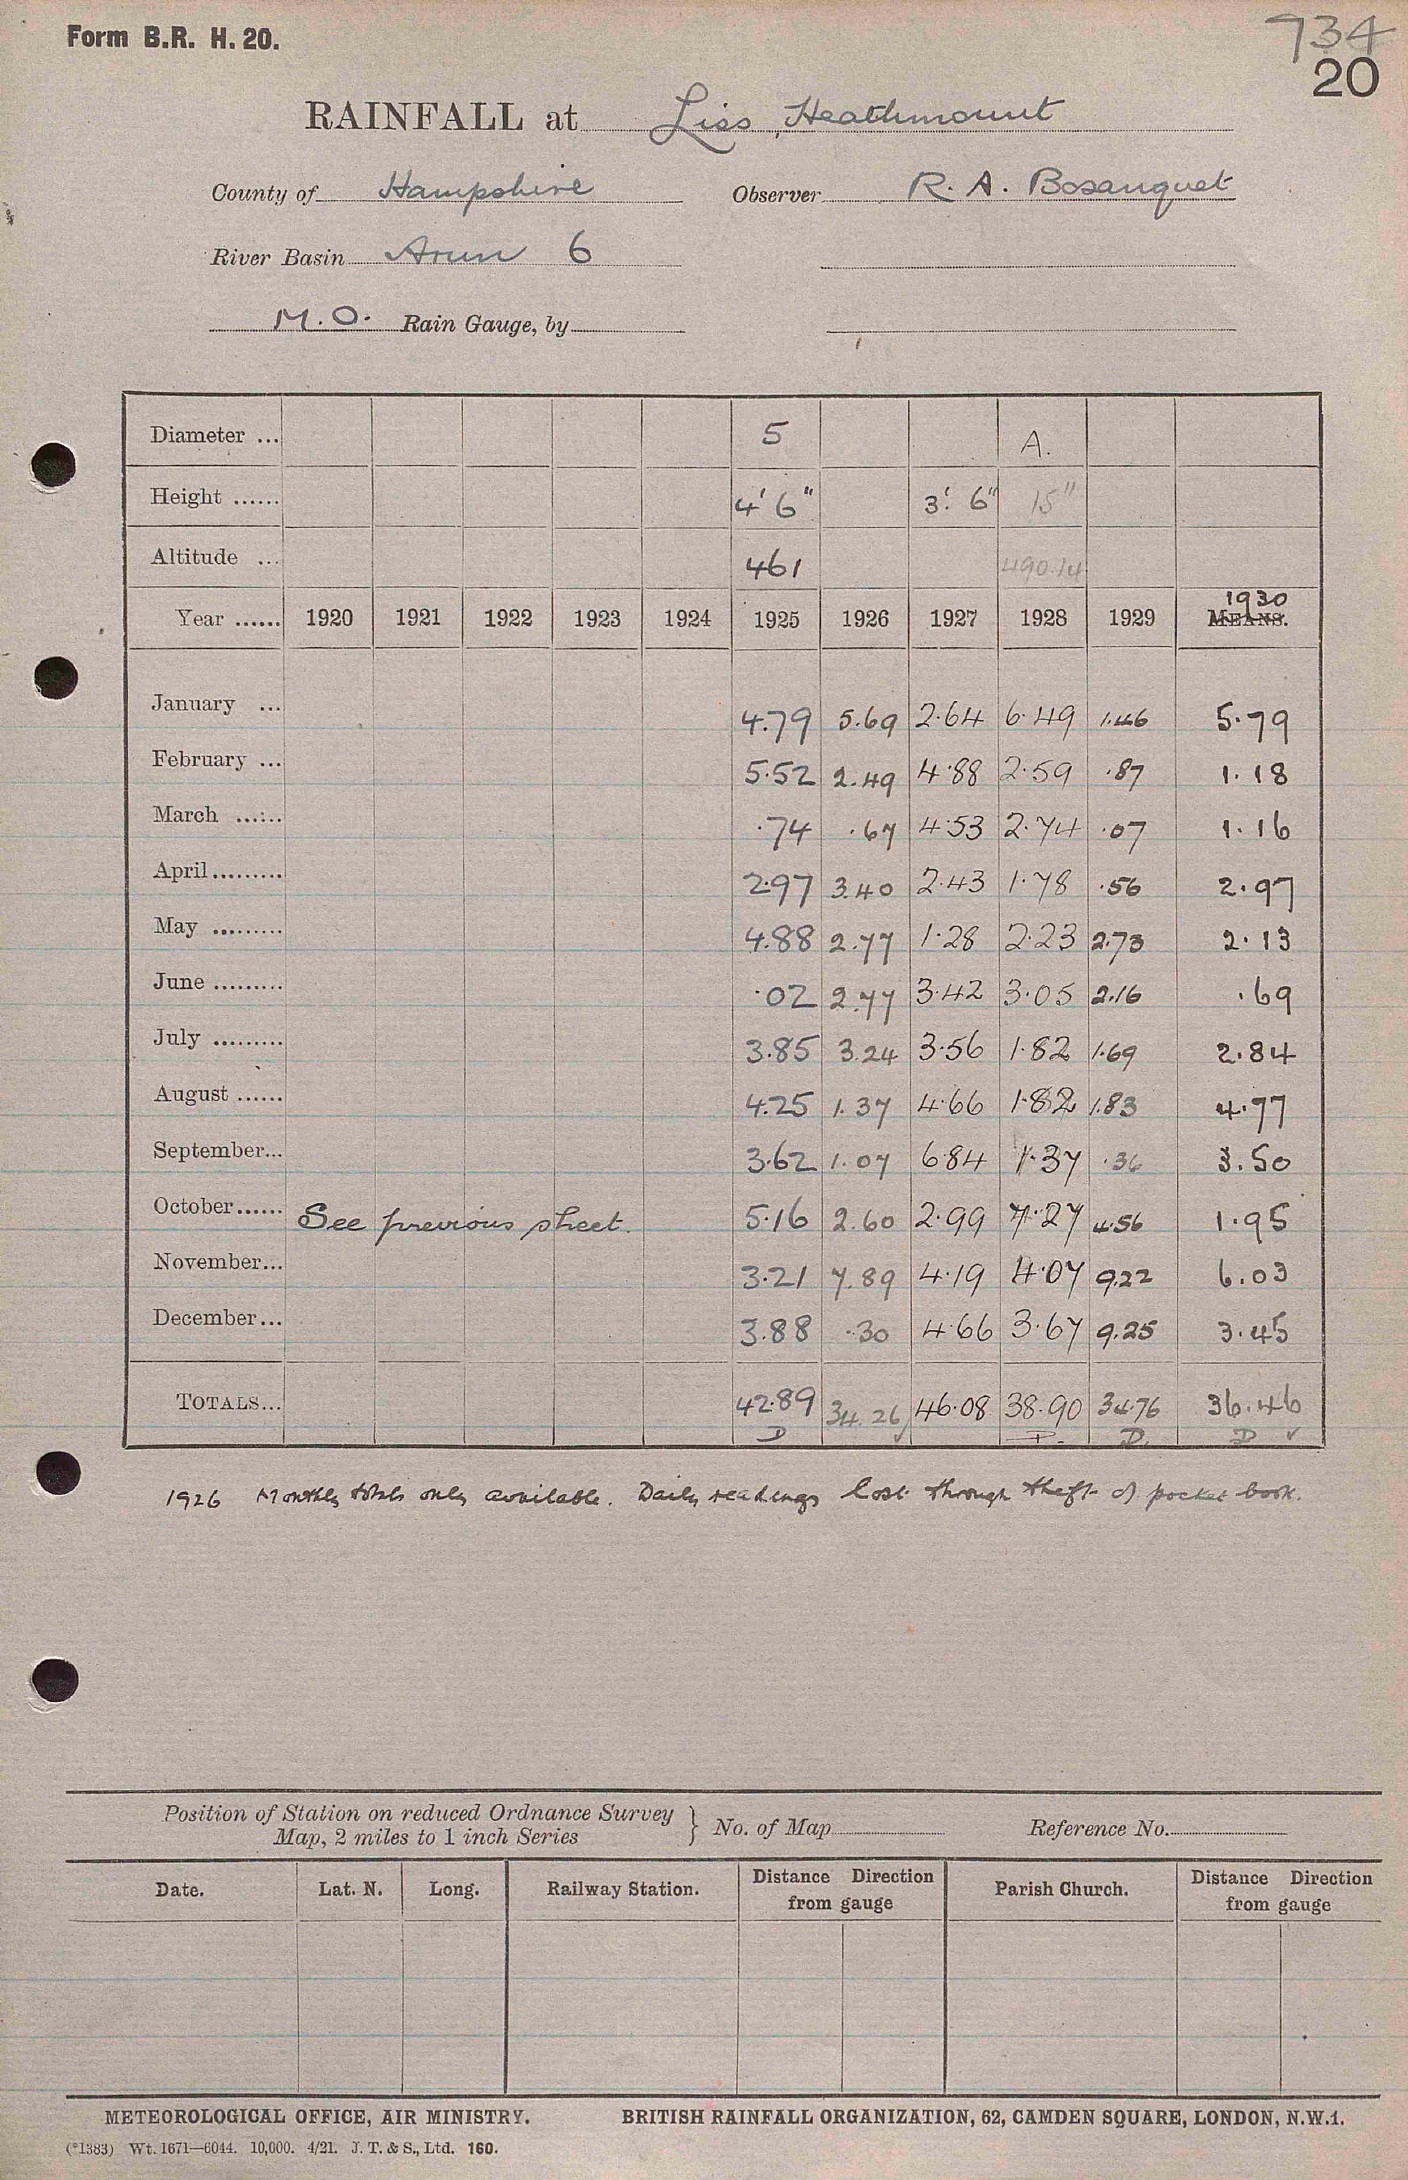 Form B.R. H. 20.
734
20
RAINFALL at Liss, Heathmount
County of Hampshire Observer R. A. Bosanquet
River Basin Arun 6
M.O. Rain Gauge, by
Diameter ... 5 A.
Height ...... 4' 6" 3' 6" 15"
Altitude ... 461 490.14
1930
Year ...... 1920 1921 1922 1923 1924 1925 1926 1927 1928 1929 MEANS.
January ... 4.79 5.69 2.64 6.49 1.46 5.79
February ... 5.52 2.49 4.88 2.59 .87 1.18
March ...... .74 .67 4.53 2.74 .07 1.16
April......... 2.97 3.40 2.43 1.78 .56 2.97
May ......... 4.88 2.77 1.28 2.23 2.73 2.13
June ......... .02 2.77 3.42 3.05 2.16 .69
July ......... 3.85 3.24 3.56 1.82 1.69 2.84
August ...... 4.25 1.37 4.66 1.82 1.83 4.77
September... 3.62 1.07 6.84 1.37 .36 3.50
October...... See previous sheet. 5.16 2.60 2.99 7.27 4.56 1.95
November... 3.21 7.89 4.19 4.07 9.22 6.03
December... 3.88 .30 4.66 3.67 9.25 3.45
TOTALS... 42.89 34.26 46.08 38.90 34.76 36.46
D ✓ D. D. D ✓
1926 Monthly totals only available. Daily readings lost through theft of pocket book.
Position of Station on reduced Ordnance Survey
Map, 2 miles to 1 inch Series } No. of Map Reference No.
Date. Lat. N. Long. Railway Station. Distance Direction from gauge Parish Church. Distance Direction from gauge
METEOROLOGICAL OFFICE, AIR MINISTRY. BRITISH RAINFALL ORGANIZATION, 62, CAMDEN SQUARE, LONDON, N.W.1.
(*1383) Wt. 1671—6044. 10,000. 4/21. J. T. & S., Ltd. 160.